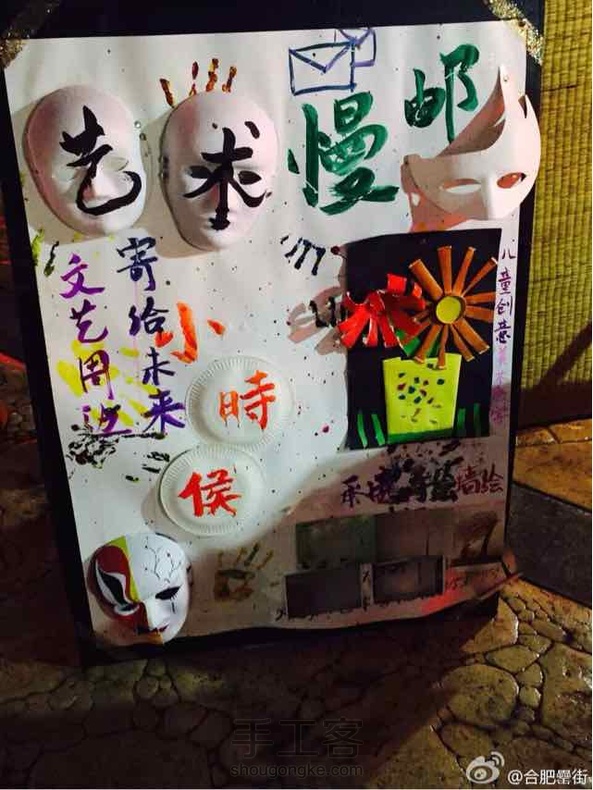 艺术
慢邮
寄给未来
文艺周边
小
時
侯
儿童创意美术
手绘墙绘
手工客
shougongke.com
@合肥罍街